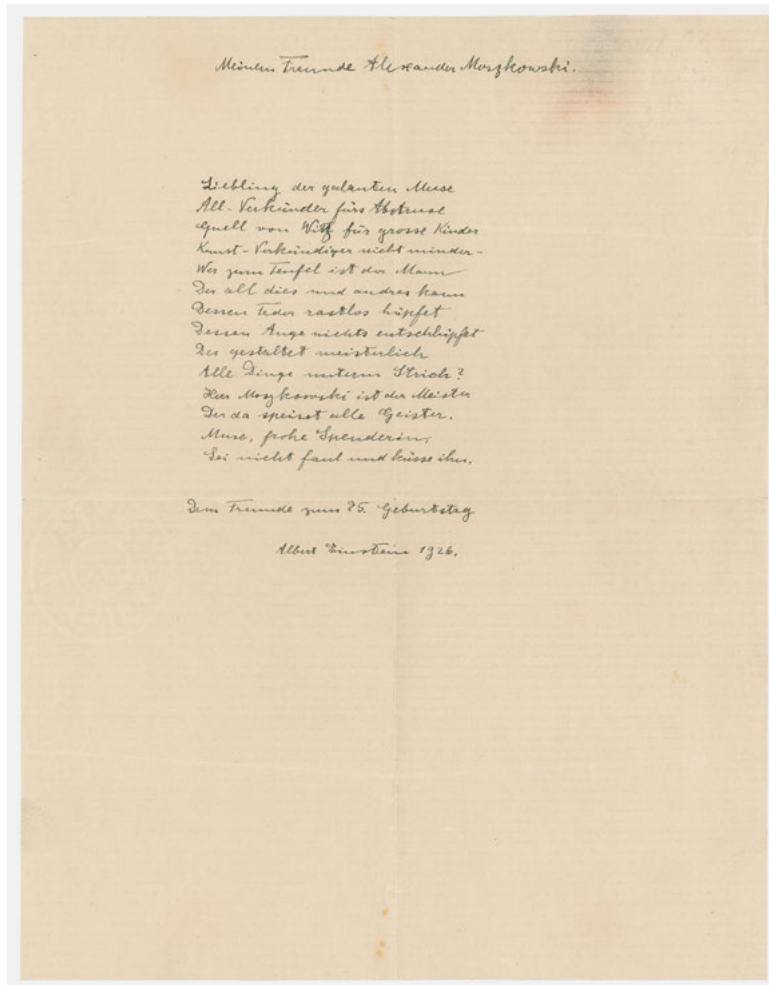 Meinem Freunde Alexander Moszkowski.
Liebling der galanten Muse
All-Verkünder fürs Abstruse
Quell von Witz für grosse Kinder
Kunst-Verkündiger nicht minder-
Wer zum Teufel ist der Mann
Der all dies und andres kann
Dessen Feder rastlos hüpfet
Dessen Auge nichts entschlüpfet
Der gestaltet meisterlich
Alle Dinge unterm Strich?
Herr Moszkowski ist der Meister
Der da speiset alle Geister.
Muse, frohe Spenderin,
Sei nicht faul und küsse ihn.
Dem Freunde zum 75. Geburtstag
Albert Einstein 1926.